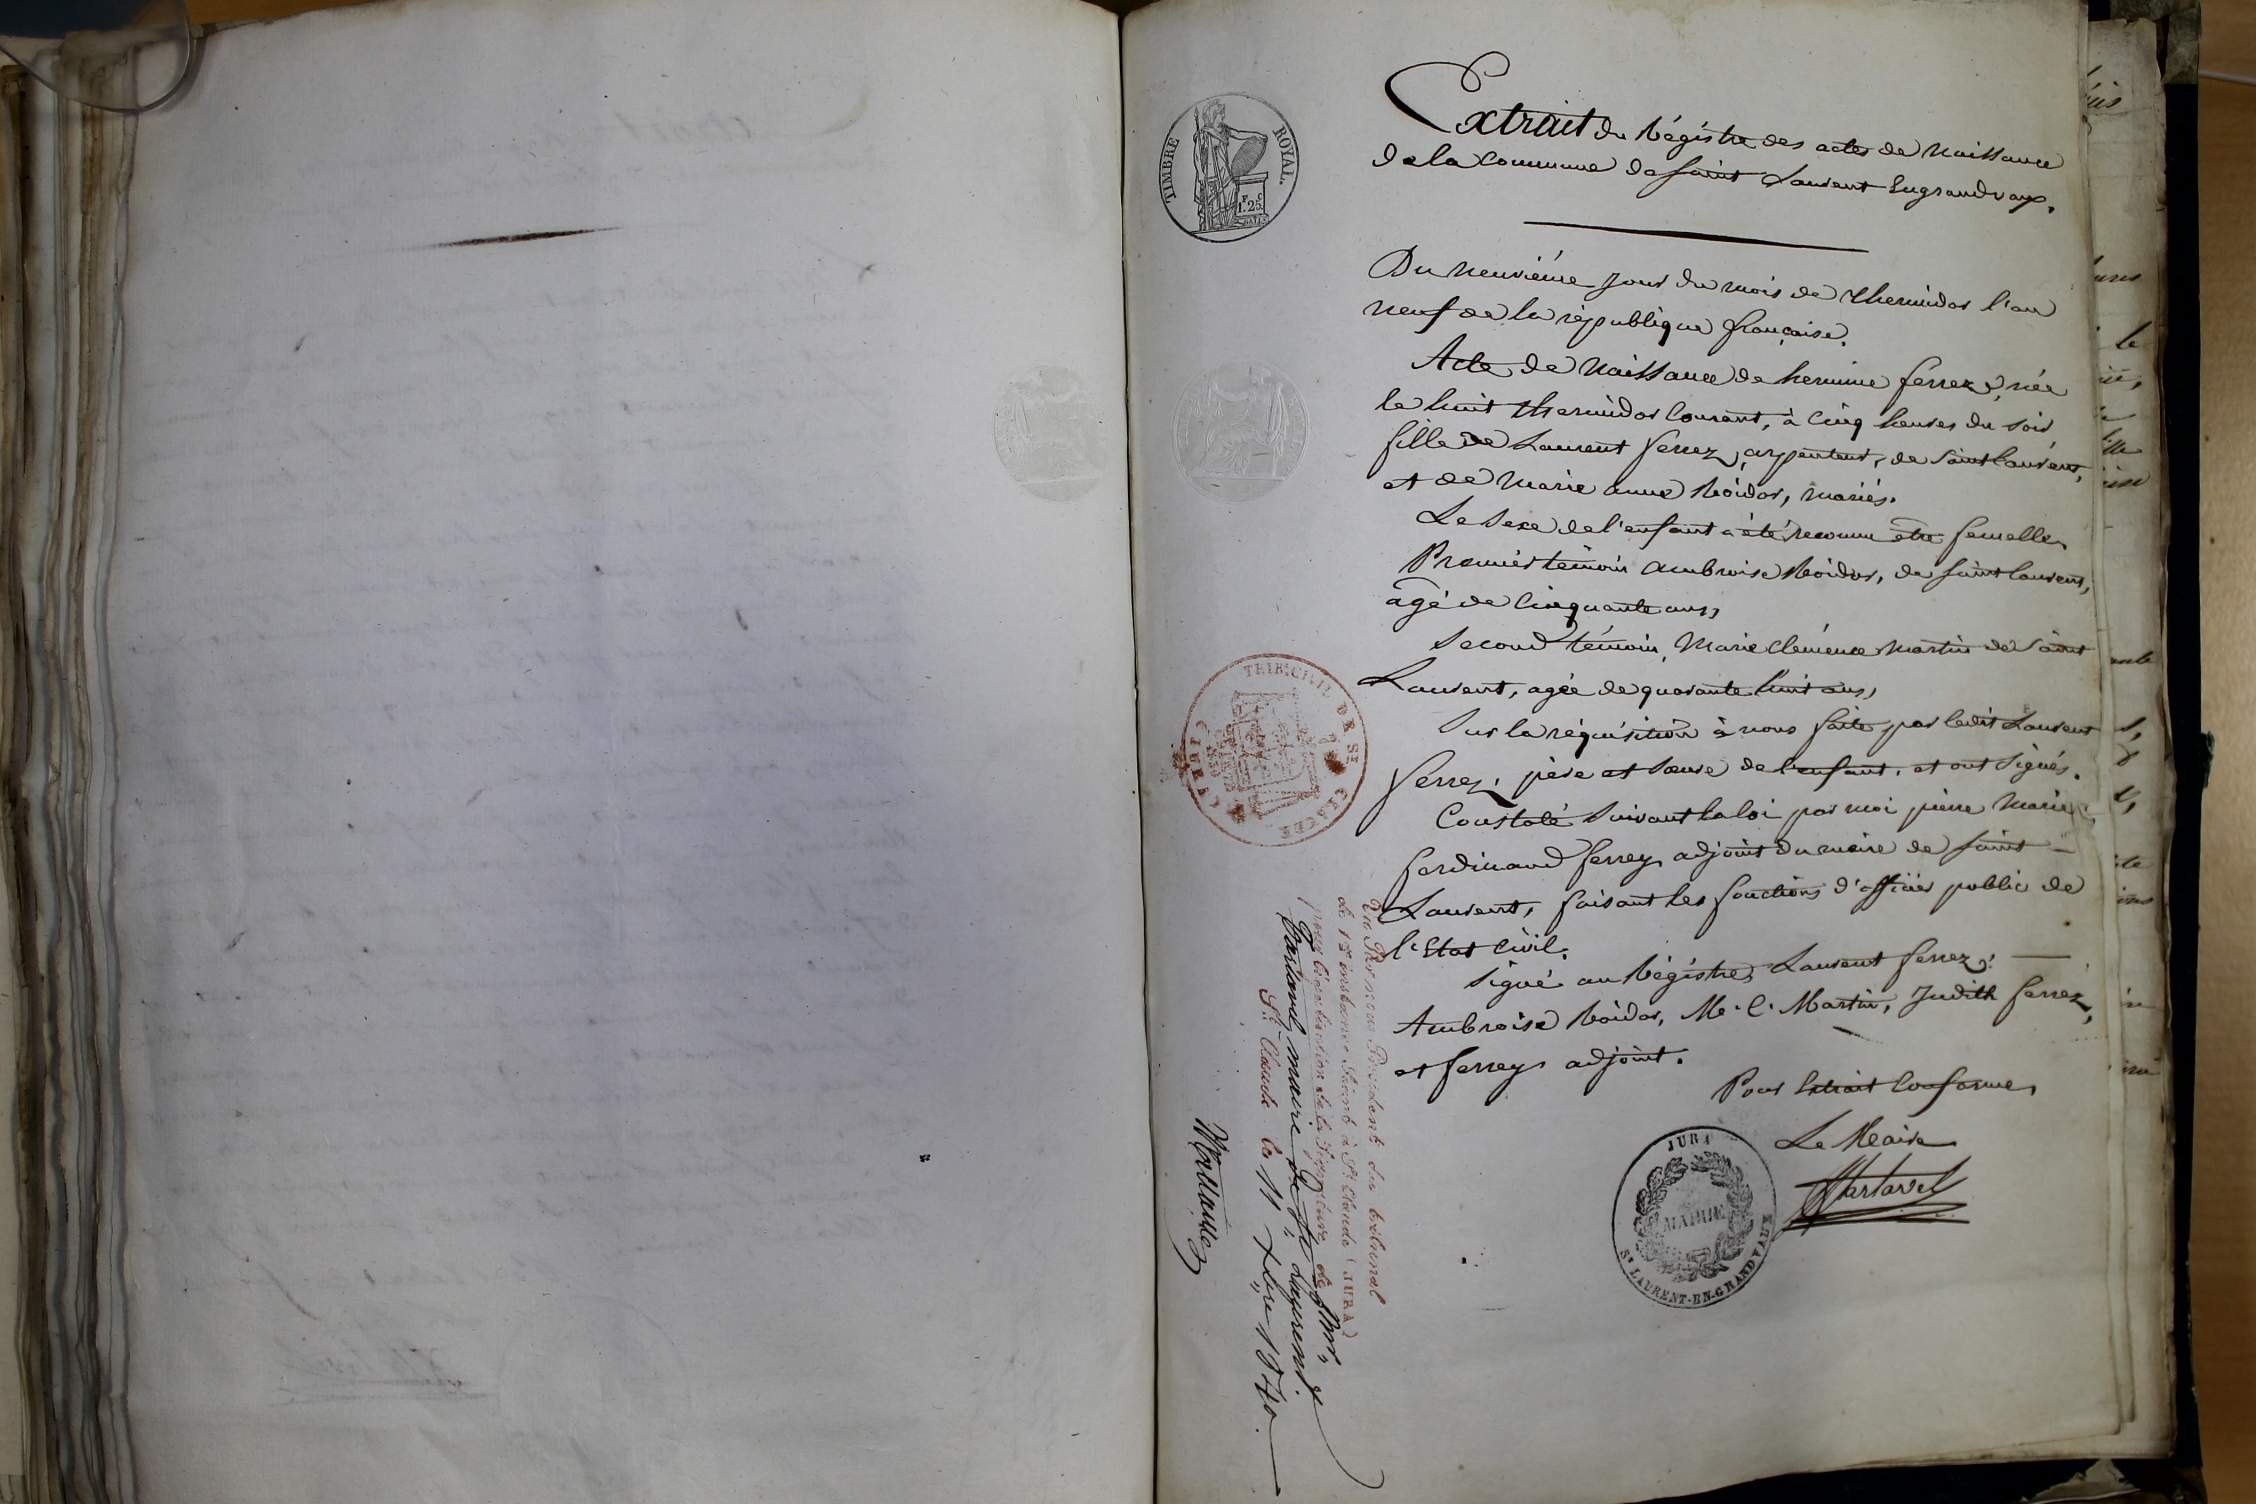 TIMBRE ROYAL.
1. 25.
Extrait du Régistre des actes de Naissance
de la Commune de Saint Laurent Engrandvaux.
Du Neuvième jour du mois de thermidor l'an
neuf de la république française.
Acte de Naissance de hermine ferrez, née
le huit thermidor Courant, à cinq heures du soir
fille de Laurent ferrez, arpenteur, de Saint Laurent,
et de Marie anne Roidor, mariés.
Le Sexe de l'enfant a été reconnu être femelle,
Premier témoin Ambroise Roidor, de Saint Laurent,
âgé de Cinquante ans,
Second témoin, Marie Clémence Martin de Saint
Laurent, agée de quarante huit ans,
Sur la réquisition à nous faite par ledit Laurent
ferrez, père et Sœur de l'enfant, et ont Signés.
Constaté Suivant la loi par moi pierre Marie
ferdinand ferrez adjoint du maire de Saint
Laurent, faisant les fonctions d'officier public de
l'Etat Civil.
Signé au Régistre, Laurent ferrez,
Ambroise Roidor, M. C. Martin, Judith ferrez,
et ferrez adjoint.
Pour Extrait Conforme,
Le Maire
Martavel
JURA
MAIRIE
ST LAURENT-EN-GRANDVAUX
TRIB. CIVIL DE ST CLAUDE
(JURA)
Président du tribunal
de 1re instance Séant à St Claude (JURA)
pour légalisation de la Signature de Mr
maire de St Laurent
St Claude le 11 Xbre 1840.